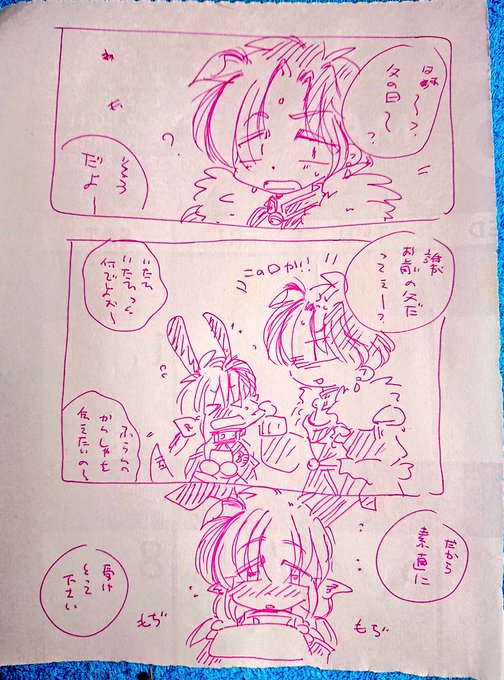 父の日〜?
そう
だよー
誰が
お前の父だ
ってぇー?
この口か!!
いたい
いたいって
何でよぉ〜
ふららの
かんしゃを
伝えたいの〜
だから
素直に
受け
とって
下さい
もぢ
もぢ